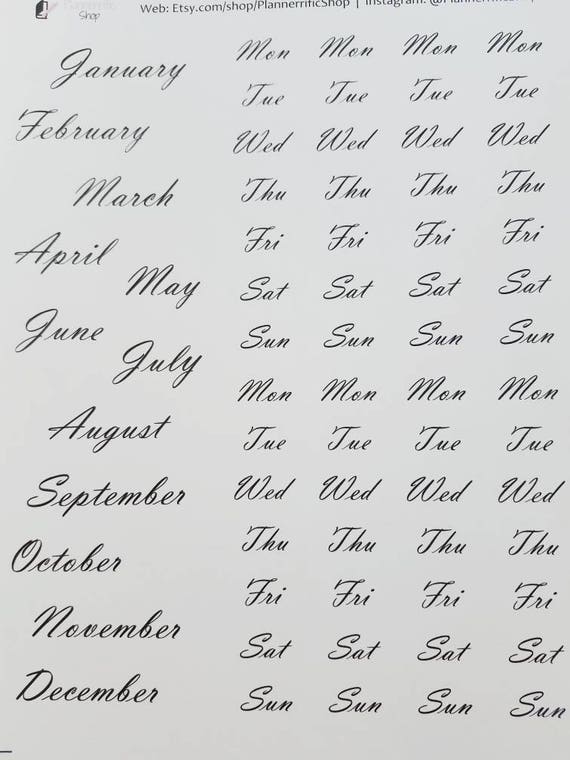 Plannerrific
Shop
Web: Etsy.com/shop/PlannerrificShop | Instagram:
January
February
March
April
May
June
July
August
September
October
November
December
Mon Mon Mon Mon
Tue Tue Tue Tue
Wed Wed Wed Wed
Thu Thu Thu Thu
Fri Fri Fri Fri
Sat Sat Sat Sat
Sun Sun Sun Sun
Mon Mon Mon Mon
Tue Tue Tue Tue
Wed Wed Wed Wed
Thu Thu Thu Thu
Fri Fri Fri Fri
Sat Sat Sat Sat
Sun Sun Sun Sun